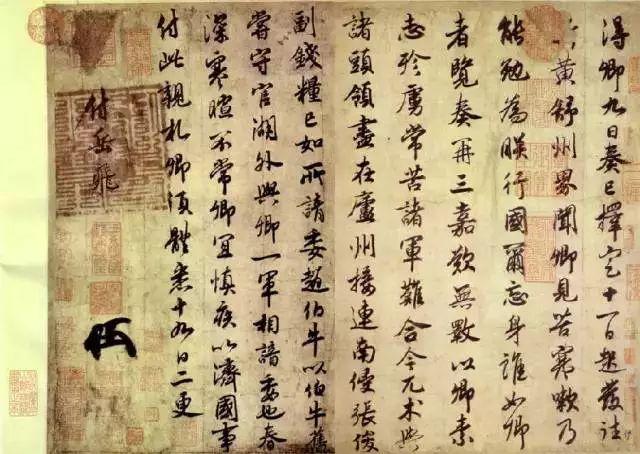 得卿九日奏已擇定十一日起發往
黃舒州界聞卿見苦寒嗽乃
能勉為朕行國爾忘身誰如卿
者覽奏再三嘉歎無斁以卿素
志殄虜常苦諸軍難合今兀术與
諸頭領盡在廬州接連南侵張俊
副錢糧已如所請委趙伯牛以伯牛舊
嘗守官湖外與卿一軍相諳委也春
深寒暄不常卿宜慎疾以濟國事
付此親札卿須體悉十九日二更
付岳飛